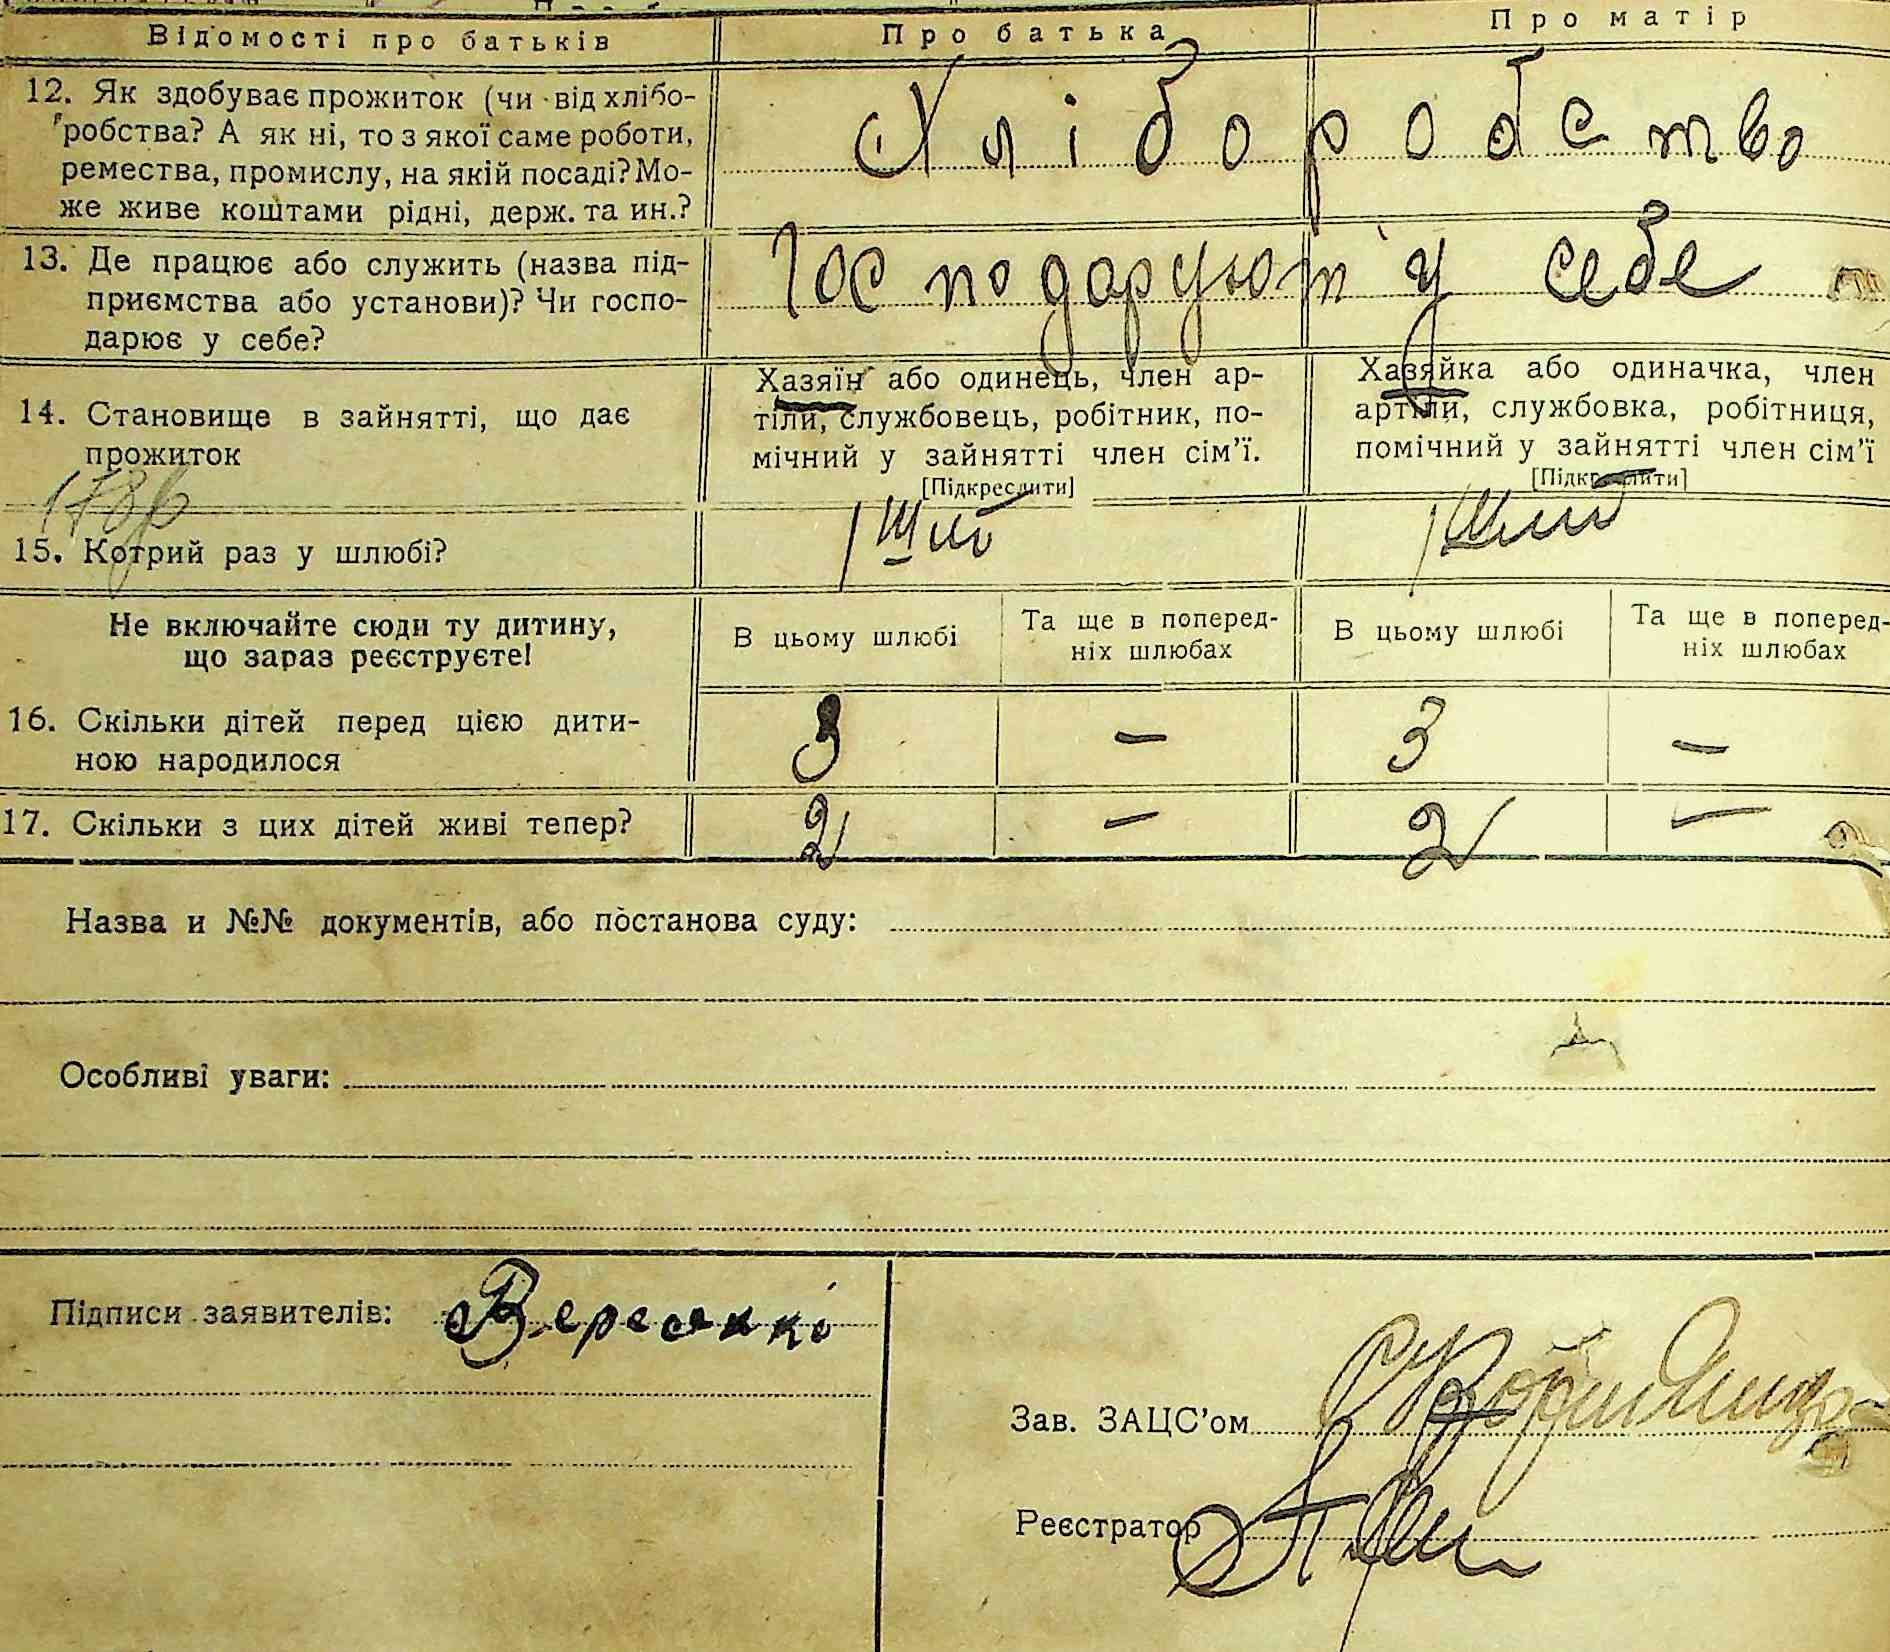 Відомості про батьків
Про батька
Про матір
12. Як здобуває прожиток (чи від хлібо-
робства? А як ні, то з якої саме роботи,
ремества, промислу, на якій посаді? Мо-
же живе коштами рідні, держ. та ин.?
Хліборобство
13. Де працює або служить (назва під-
приємства або установи)? Чи госпо-
дарює у себе?
Господарюют у себе
14. Становище в зайнятті, що дає
прожиток
Хазяїн або одинець, член ар-
тіли, службовець, робітник, по-
мічний у зайнятті член сім'ї.
[Підкреслити]
Хазяйка або одиначка, член
артіли, службовка, робітниця,
помічний у зайнятті член сім'ї
[Підкреслити]
15. Котрий раз у шлюбі?
1ший
1ший
Не включайте сюди ту дитину,
що зараз реєструєте!
В цьому шлюбі
Та ще в поперед-
ніх шлюбах
В цьому шлюбі
Та ще в поперед-
ніх шлюбах
16. Скільки дітей перед цією дити-
ною народилося
3 – 3 –
17. Скільки з цих дітей живі тепер?
2 – 2 –
Назва и №№ документів, або постанова суду:
Особливі уваги:
Підписи заявителів:
Зав. ЗАЦС'ом
Реєстратор